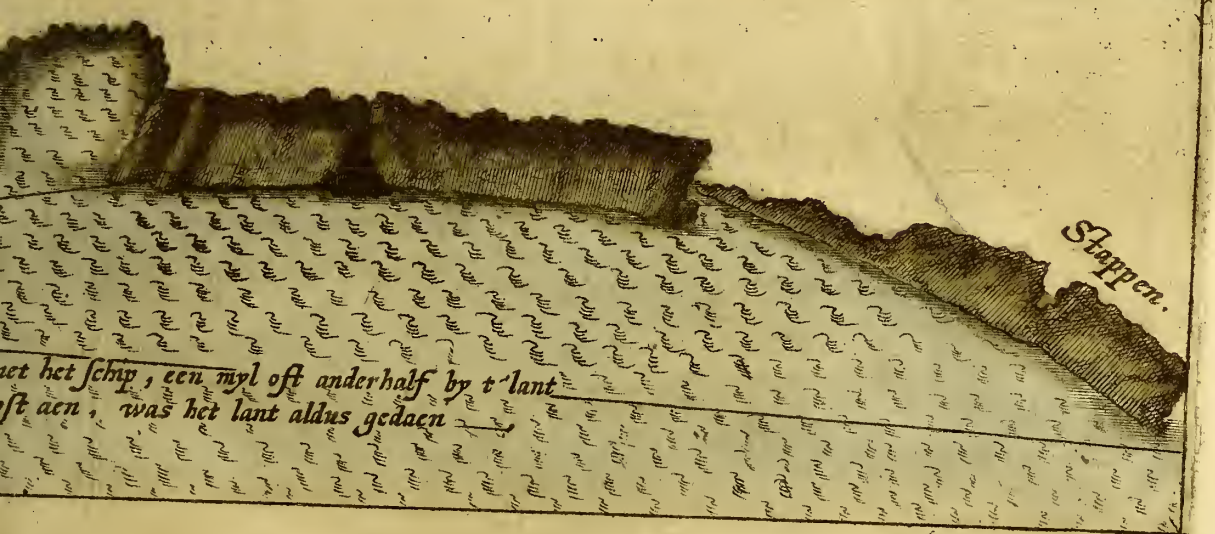 Stappen.
het schip, een myl oft anderhalf by t'lant
aen, was het lant aldus gedaen